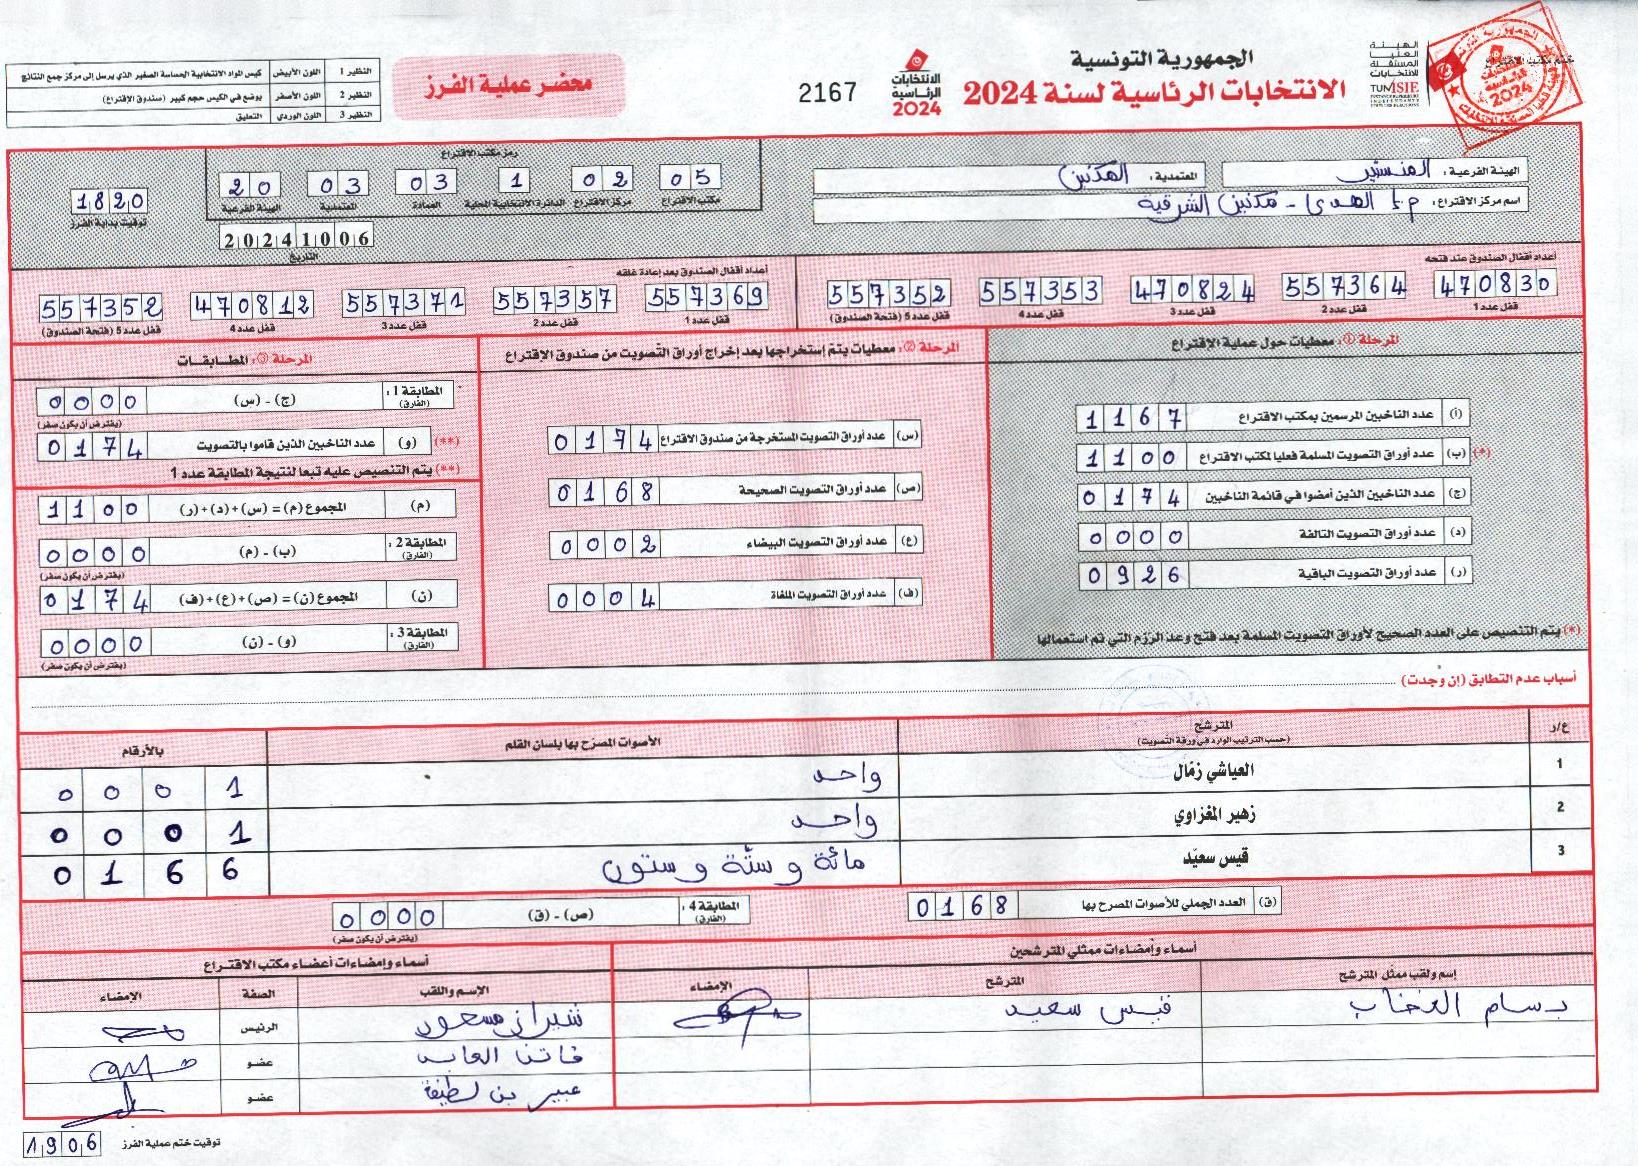 الجمهورية التونسية
الانتخابات الرئاسية لسنة 2024
الهيئة العليا المستقلة للانتخابات
TUNISIE
الانتخابات الرئاسية 2024
2167
محضر عملية الفرز
النظير 1 اللون الأبيض كيس المواد الانتخابية الحساسة الصغير الذي يرسل إلى مركز جمع النتائج
النظير 2 اللون الأصفر يوضع في الكيس حجم كبير (صندوق الإقتراع)
النظير 3 اللون الوردي التعليق
الهيئة الفرعية : المنستير المعتمدية : المكنين
اسم مركز الاقتراع : م إ الهدى - مكنين الشرقية
رمز مكتب الاقتراع
05 02 1 03 03 20
مكتب الاقتراع مركز الاقتراع الدائرة الانتخابية المحلية العمادة المعتمدية الهيئة الفرعية
20241006
التاريخ
1820
توقيت بداية الفرز
أعداد أقفال الصندوق عند فتحه
470830 557364 470824 557353 557352
قفل عدد 1 قفل عدد 2 قفل عدد 3 قفل عدد 4 قفل عدد 5 (فتحة الصندوق)
أعداد أقفال الصندوق بعد إعادة غلقه
557369 557357 557371 470812 557352
قفل عدد 1 قفل عدد 2 قفل عدد 3 قفل عدد 4 قفل عدد 5 (فتحة الصندوق)
المرحلة (1): معطيات حول عملية الاقتراع
(أ) عدد الناخبين المرسمين بمكتب الاقتراع 1167
(*) (ب) عدد أوراق التصويت المسلمة فعليا لمكتب الاقتراع 1100
(ج) عدد الناخبين الذين أمضوا في قائمة الناخبين 0174
(د) عدد أوراق التصويت التالفة 0000
(ر) عدد أوراق التصويت الباقية 0926
(*) يتم التنصيص على العدد الصحيح لأوراق التصويت المسلمة بعد فتح وعد الرزم التي تم استعمالها
المرحلة (2): معطيات يتم إستخراجها بعد إخراج أوراق التصويت من صندوق الاقتراع
(س) عدد أوراق التصويت المستخرجة من صندوق الاقتراع 0174
(ص) عدد أوراق التصويت الصحيحة 0168
(ع) عدد أوراق التصويت البيضاء 0002
(ف) عدد أوراق التصويت الملغاة 0004
المرحلة (3): المطابقات
المطابقة 1 : (الفارق) (ج) - (س) 0000
(يفترض أن يكون صفر)
(**) (و) عدد الناخبين الذين قاموا بالتصويت 0174
(**) يتم التنصيص عليه تبعا لنتيجة المطابقة عدد 1
(م) المجموع (م) = (س)+(د)+(ر) 1100
المطابقة 2 : (الفارق) (ب) - (م) 0000
(يفترض أن يكون صفر)
(ن) المجموع (ن) = (ص)+(ع)+(ف) 0174
المطابقة 3 : (الفارق) (و) - (ن) 0000
(يفترض أن يكون صفر)
أسباب عدم التطابق (إن وجدت)
ع/ر المترشح الأصوات المصرّح بها بلسان القلم بالأرقام
(حسب الترتيب الوارد في ورقة التصويت)
1 العياشي زمّال واحد 0001
2 زهير المغزاوي واحد 0001
3 قيس سعيّد مائة و ستّة و ستون 0166
(ق) العدد الجملي للأصوات المصرح بها 0168
المطابقة 4 : (الفارق) (ص) - (ق) 0000
(يفترض أن يكون صفر)
أسماء وإمضاءات ممثلي المترشحين
إسم ولقب ممثل المترشح المترشح الإمضاء
بسام قيس سعيد
أسماء وإمضاءات أعضاء مكتب الاقتراع
الإسم واللقب الصفة الإمضاء
شيراز مسعود الرئيس
فاتن العابد عضو
عبير بن لطيفة عضو
توقيت ختم عملية الفرز 1906